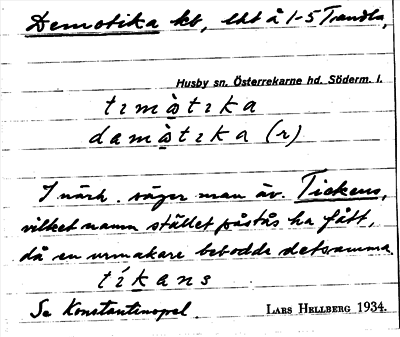 Demotika kt, lht å 1-5 Trandla,
Husby sn. Österrekarne hd. Söderm. l.
tımàtıka
damàtıka (r)
I närh. säger man äv. Tickens,
vilket namn stället påstås ha fått,
då en urmakare bebodde detsamma.
tíkans
Se Konstantinopel.
LARS HELLBERG 1934.